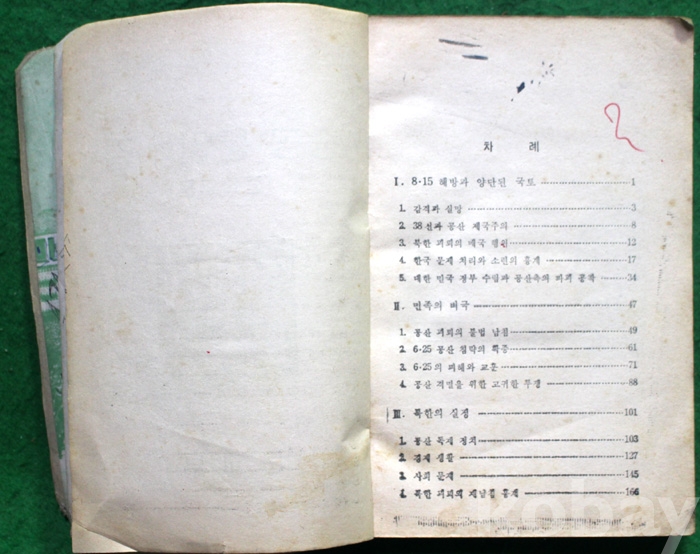 차 례
I. 8·15 해방과 양단된 국토 1
1. 감격과 실망 3
2. 38선과 공산 제국주의 8
3. 북한 괴뢰의 매국 행위 12
4. 한국 문제 처리와 소련의 흉계 17
5. 대한 민국 정부 수립과 공산측의 파괴 공작 34
II. 민족의 비극 47
1. 공산 괴뢰의 불법 남침 49
2. 6·25 공산 침략의 특증 61
3. 6·25의 피해와 교훈 71
4. 공산 격멸을 위한 고귀한 투쟁 88
III. 북한의 실정 101
1. 공산 독재 정치 103
2. 경제 생활 127
3. 사회 문제 145
4. 북한 괴뢰의 재남침 흉계 166
kobay